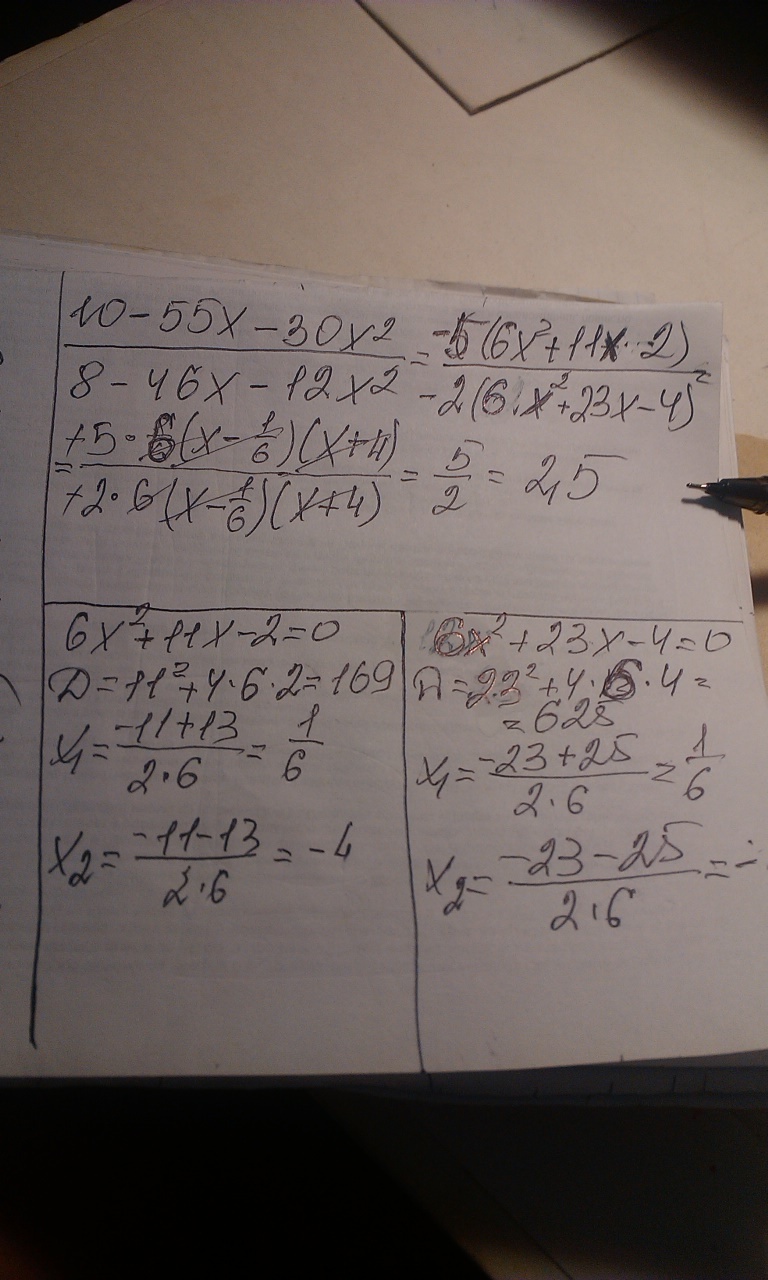 (10-55x-30x²)/(8-46x-12x²) = (-5(6x²+11x-2))/(-2(6x²+23x-4)) =
= (+5·6(x-1/6)(x+4))/(+2·6(x-1/6)(x+4)) = 5/2 = 2,5
6x²+11x-2=0
D=11²+4·6·2=169
x₁=(-11+13)/(2·6)=1/6
x₂=(-11-13)/(2·6)=-4
6x²+23x-4=0
D=23²+4·6·4=
=625
x₁=(-23+25)/(2·6)=1/6
x₂=(-23-25)/(2·6)=-